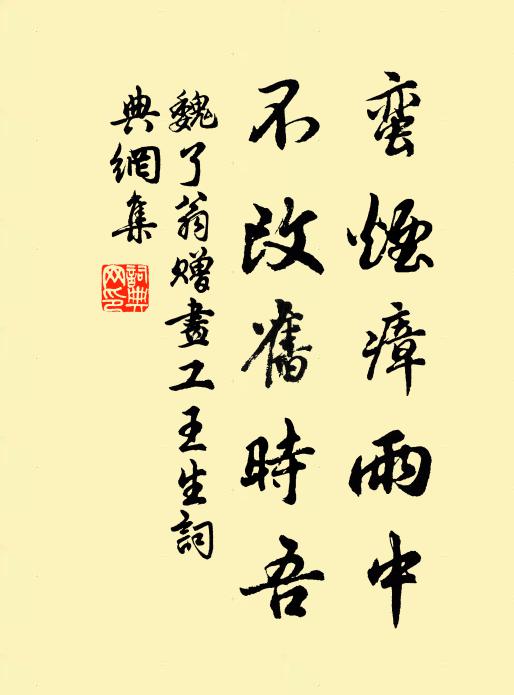 蛮煙瘴雨中
不改舊時吾
魏了翁贈畫工王生詞
典網集
詞典網印